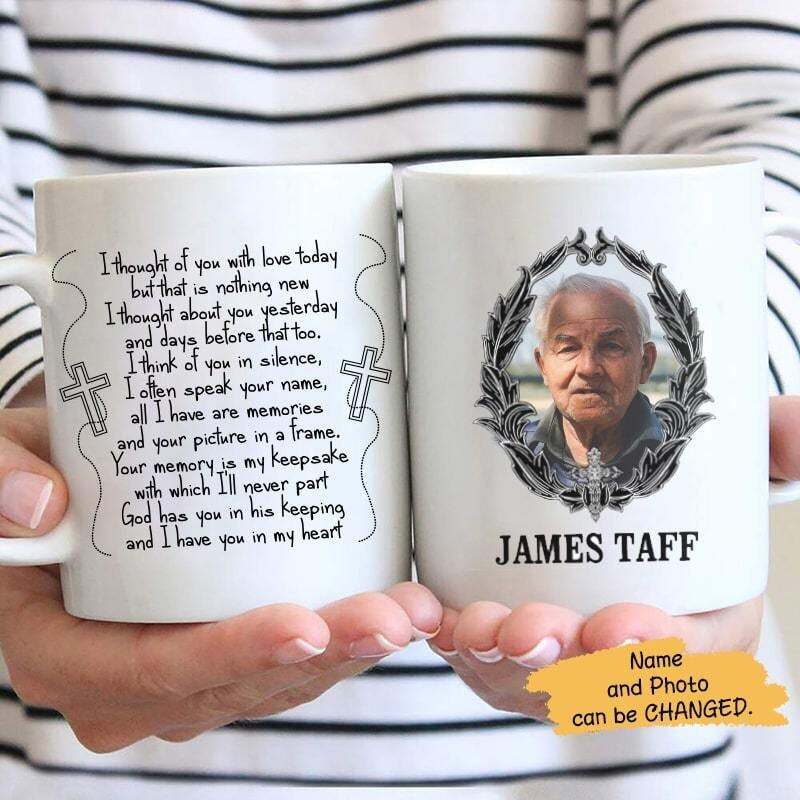 I thought of you with love today
but that is nothing new
I thought about you yesterday
and days before that too.
I think of you in silence,
I often speak your name,
all I have are memories
and your picture in a frame.
Your memory is my keepsake
with which I'll never part
God has you in his keeping
and I have you in my heart
JAMES TAFF
Name
and Photo
can be CHANGED.